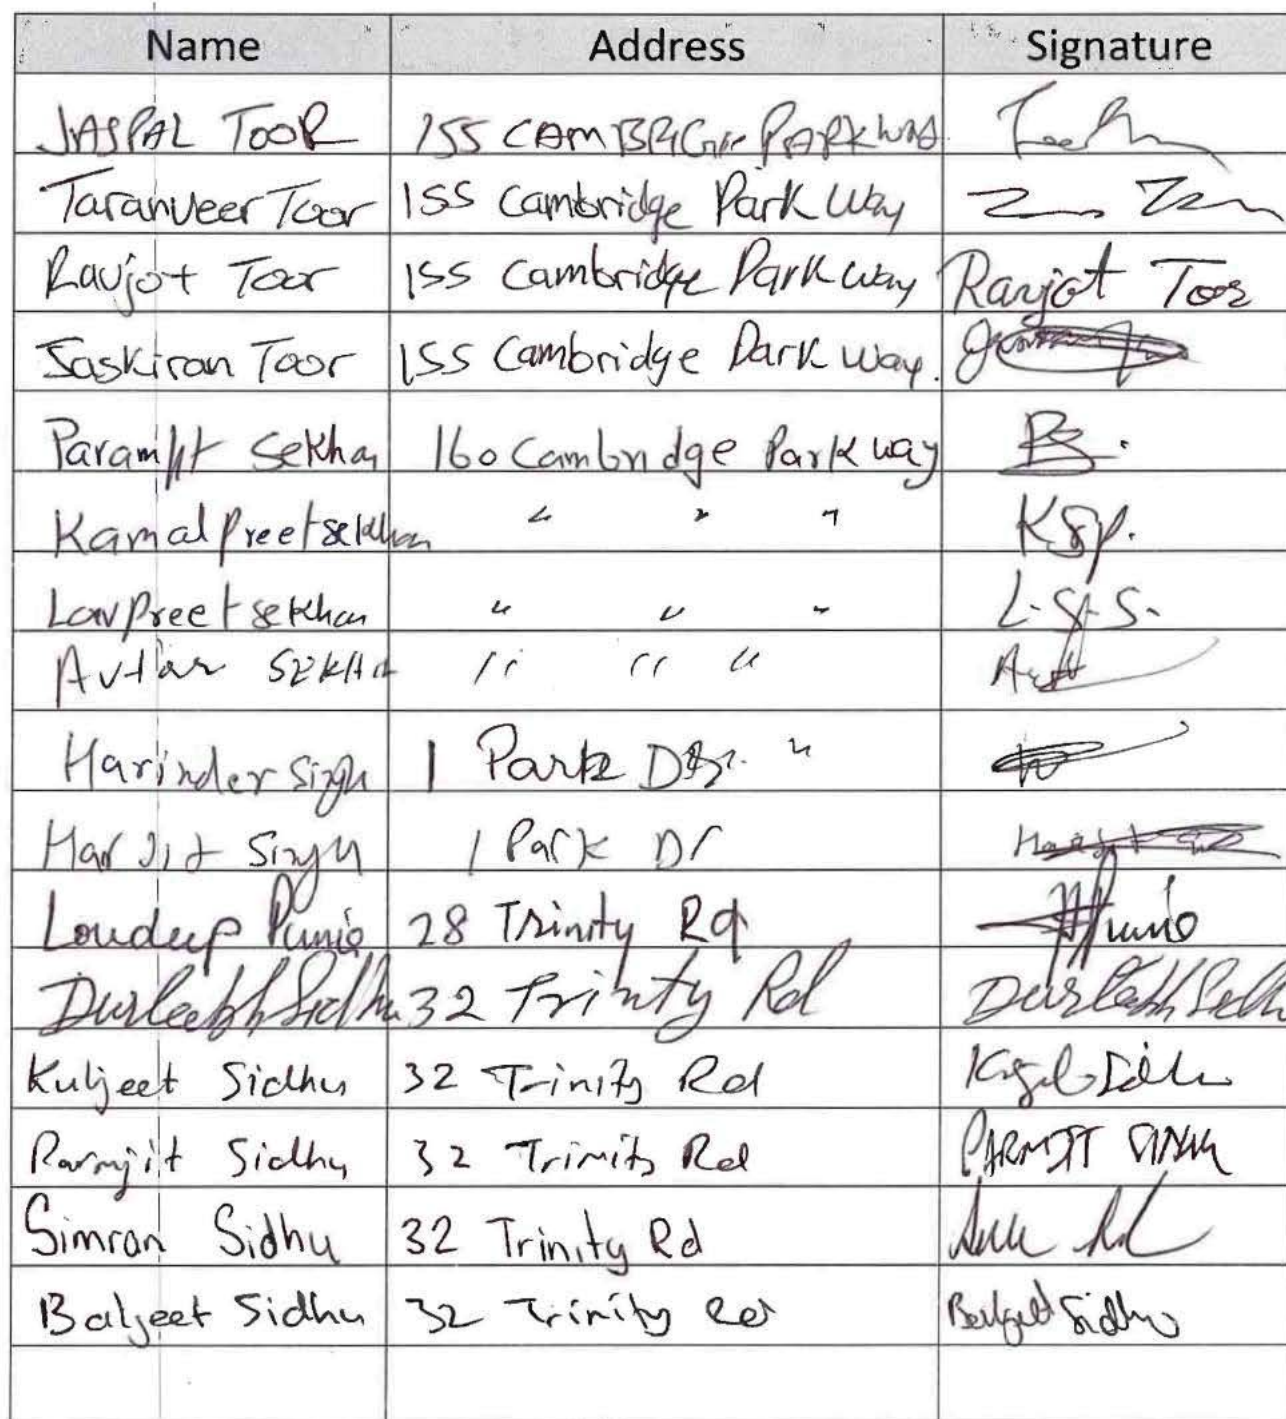 Name Address Signature
JASPAL TOOR 155
Taranveer Toor 155 Cambridge Park Way
Ravjot Toor 155 Cambridge Park Way Ravjot Toor
Jaskiran Toor 155 Cambridge Park Way.
Paramjit Sekhon 160 Cambridge Park way
Kamalpreet sekhon " " " Ksp.
Lovpreet sekhon " " " L.S.S.
Avtar " " "
Harinder Singh 1 Park "
Harjit Singh 1 Park Dr
Punia 28 Trinity Rd Punia
Durlabh Sidhu 32 Trinity Rd Durlabh Sidhu
Kuljeet Sidhu 32 Trinity Rd Sidhu
Parmjit Sidhu 32 Trinity Rd PARMJIT
Simran Sidhu 32 Trinity Rd
Baljeet Sidhu 32 Trinity Rd Baljeet Sidhu